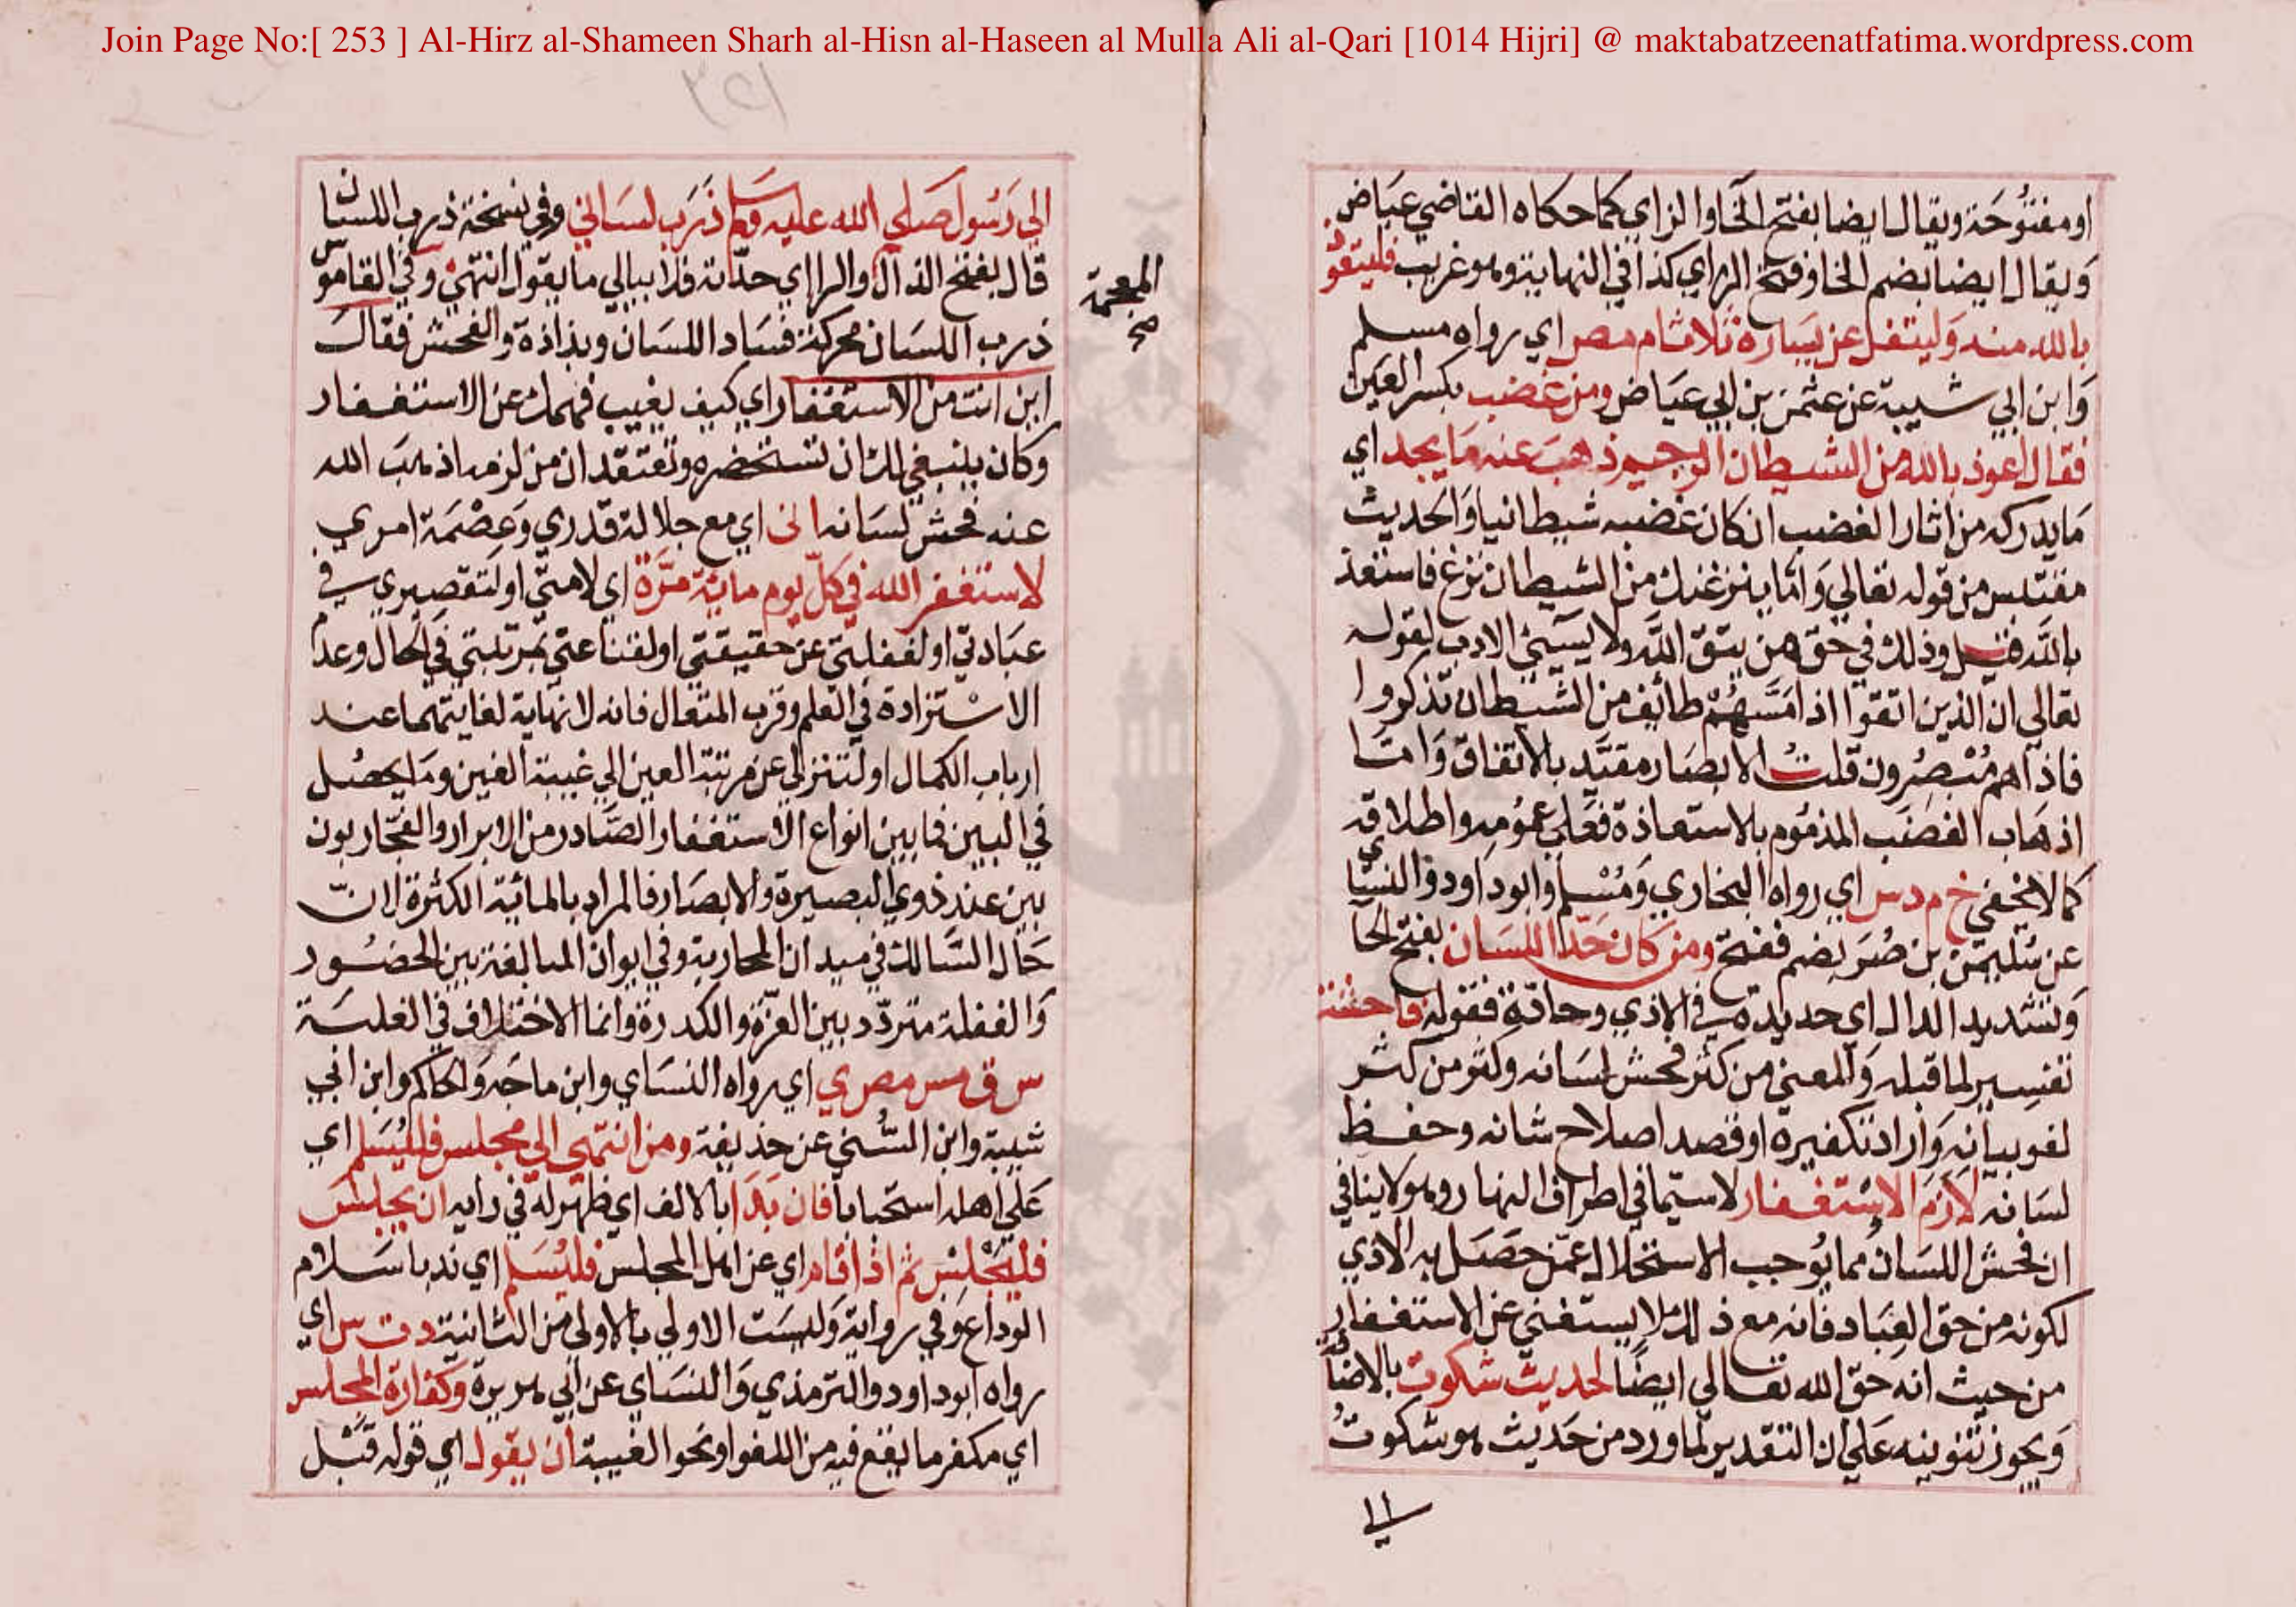 Join Page No:[ 253 ] Al-Hirz al-Shameen Sharh al-Hisn al-Haseen al Mulla Ali al-Qari [1014 Hijri] @ maktabatzeenatfatima.wordpress.com
او مفتوحة ويقال ايضا بفتح الخا والزاي كما حكاه القاضي عياض
ويقال ايضا بضم الخا وفتح الزاي كذا في النهاية وهو غريب فليتعوذ
بالله منه وليتفل عن يساره ثلاثا م مص اي رواه مسلم
وابن ابي شيبة عن عثمن بن ابي عياض ومن غضب بكسر العين
فقال اعوذ بالله من الشيطان الرجيم ذهب عنه ما يجد اي
ما يدركه من اثار الغضب ان كان غضبه شيطانيا والحديث
مقتبس من قوله تعالي واما ينزغنك من الشيطان نزغ فاستعذ
بالله قيل وذلك في حق من يتق الله ولا يسيئ الادب لقوله
تعالي ان الذين اتقوا اذا مسهم طائف من الشيطان تذكروا
فاذا هم مبصرون قلت الابصار مقيد بالاتفاق واما
اذهاب الغضب المذموم بالاستعاذة فعلي عمومه واطلاقه
كما لا يخفي خ م د س اي رواه البخاري ومسلم وابو داود والنسائي
عن سليمن بن صرد بضم ففتح ومن كان حد اللسان بفتح الحا
وتشديد الدال اي حديده في الاذي وحادّه فقوله فاحشته
تفسير لما قبله والمعني من كثر فحش لسانه وكثر من كثر
لغو بيانه واراد تكفيره او قصد اصلاح شانه وحفظ
لسانه لازم الاستغفار لا سيما في اطراف النهار وهو لا ينافي
ان فحش اللسان مما يوجب الاستحلال عمن حصل به الاذي
لكونه من حق العباد فانه مع ذلك لا يستغني عن الاستغفار
من حيث انه حق الله تعالي ايضا لحديث شكوت بالاضافة
ويجوز تنوينه علي ان التقدير لما ورد من حديث هو شكوت
الي
الي رسول صلي الله عليه وسلم ذرب لساني وفي نسخة ذرب اللسان
قال بفتح الذال والرا اي حدّته فلا يبالي ما يقول انتهي وفي القاموس
المعجمة
صح
ذرب اللسان محركة فساد اللسان وبذاذة والفحش فقال
اين انت من الاستغفار اي كيف يغيب فهمك عن الاستغفار
وكان ينبغي لك ان تستحضره وتعتقد ان من لزمه اذهب الله
عنه فحش لسانه اني اي مع جلالة قدري وعصمة امري
لاستغفر الله في كل يوم مائة مرّة اي لامتي او لتقصيري في
عبادتي او لغفلتي عن حقيقتي او لقناعتي بمرتبتي في الحال وعدم
الاستزادة في العلم وقرب المتعال فانه لا نهاية لغايتهما عند
ارباب الكمال او لتنزلي عن مرتبة العين الي غيبة الغين وما يحصل
في البين فما بين انواع الاستغفار الصادر من الابرار والفجار بون
بين عند ذوي البصيرة والابصار فالمراد بالمائة الكثرة لان
حال السالك في ميدان المحاربة وفي ايوان المبالغة بين الحضور
والغفلة متردد بين العزة والكدرة وانما الاختلاف في الغلبة
س ق مس مص ي اي رواه النسائي وابن ماجه والحاكم وابن ابي
شيبة وابن السني عن حذيفة ومن انتهي الي مجلس فليسلم اي
علي اهله استحبابا فان بدا بالالف اي ظهر له في رايه ان يجلس
فليجلس ثم اذا قام اي عن اهل المجلس فليسلم اي ندبا سلام
الوداع وفي رواية وليست الاولي بالاولي من الثانية د ت س اي
رواه ابو داود والترمذي والنسائي عن ابي هريرة وكفارة المجلس
اي مكفر ما يقع فيه من اللغو او نحو الغيبة ان يقول اي قوله قبل